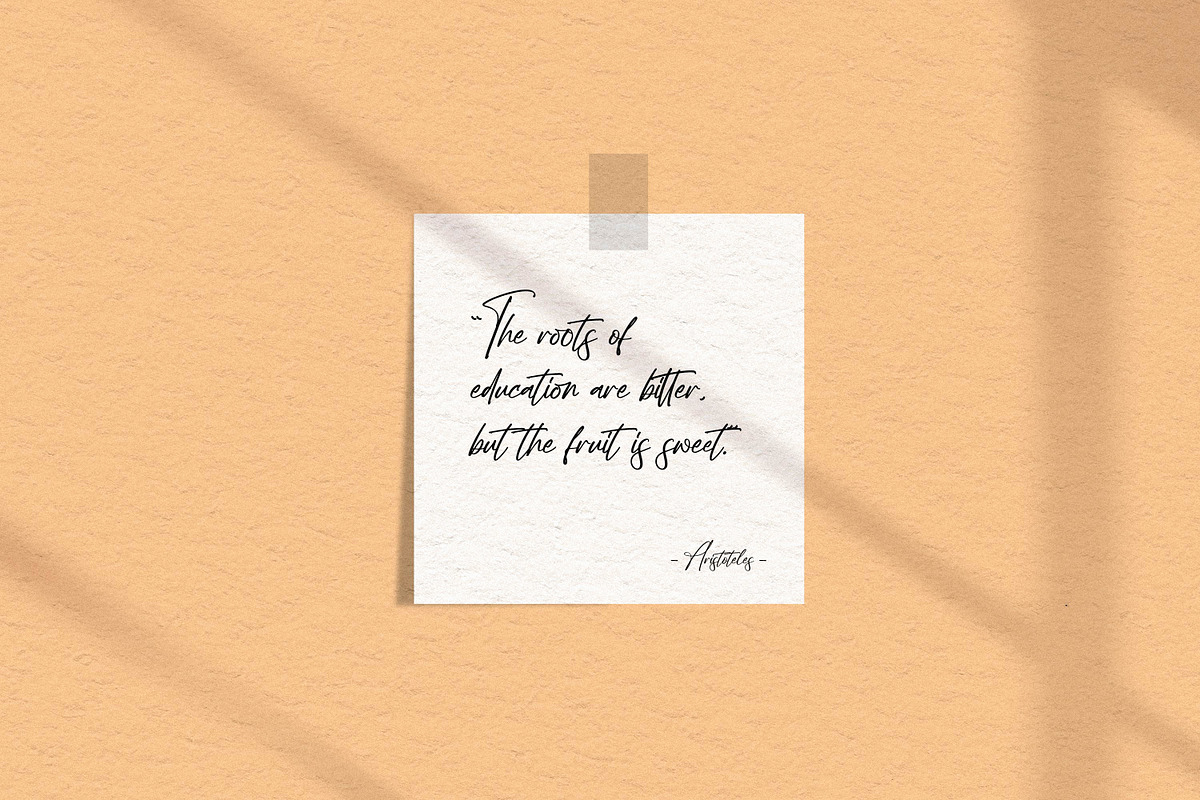 "The roots of
education are bitter,
but the fruit is sweet."
- Aristoteles -